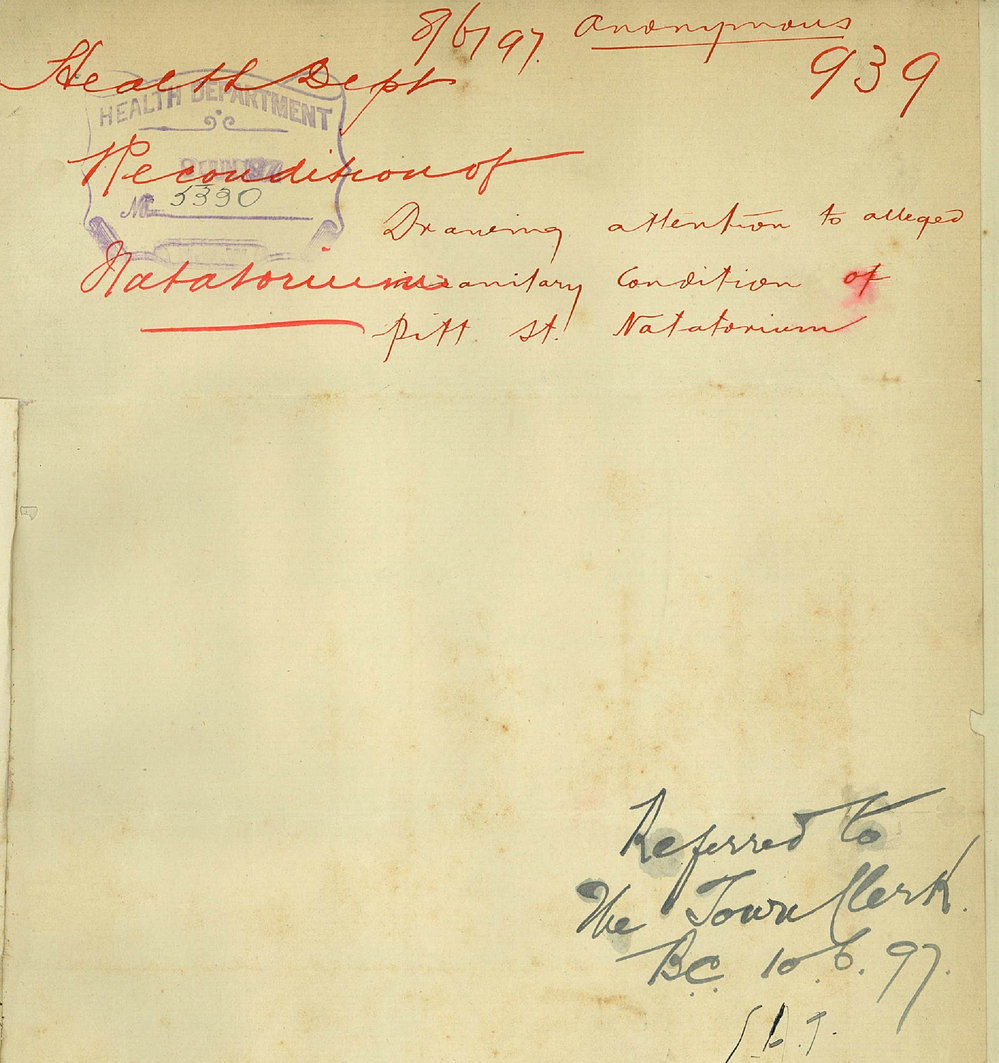 8/6/97. Anonymous
939
Health Dept
HEALTH DEPARTMENT
Re condition of
No. 5390
Natatorium
Drawing attention to alleged
insanitary Condition of
Pitt St. Natatorium
Referred to
The Town Clerk.
B.C. 10.6.97.